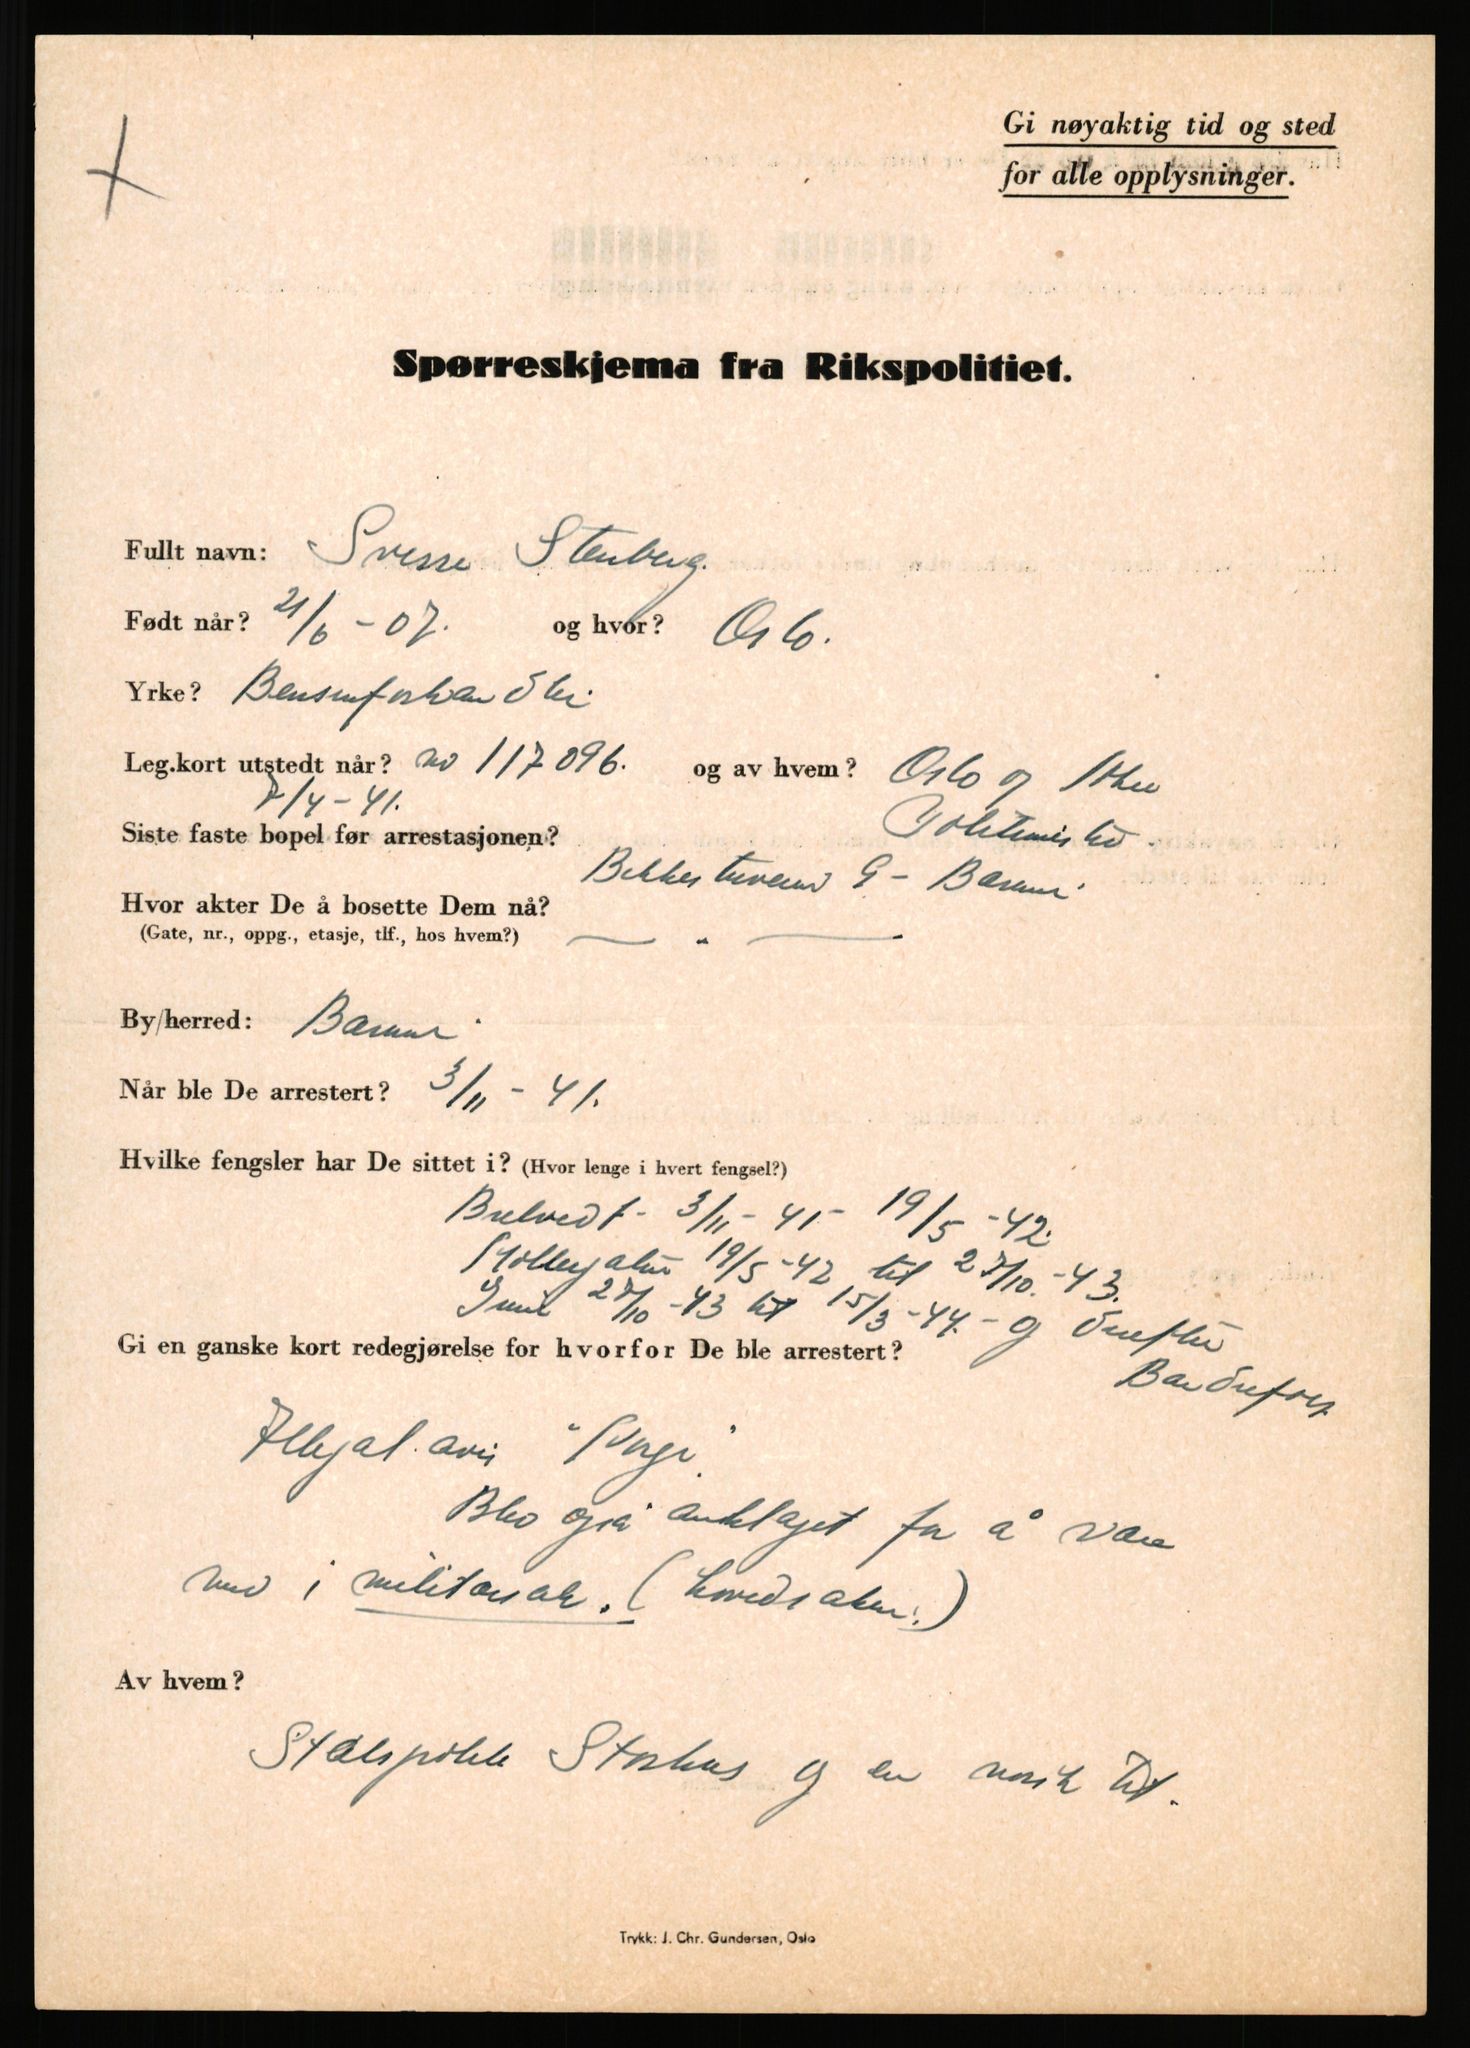 Gi nøyaktig tid og sted
for alle opplysninger.
Spørreskjema fra Rikspolitiet.
Fullt navn: Sverre Stenberg.
Født når? 21/6 - 07. og hvor? Oslo.
Yrke? Bensinforhandler
Leg.kort utstedt når? no 117096. og av hvem? Oslo og Aker
7/4 - 41. Politimester.
Siste faste bopel før arrestasjonen?
Bekkestuveien 9 - Bærum.
Hvor akter De å bosette Dem nå?
(Gate, nr., oppg., etasje, tlf., hos hvem?) — " —
By/herred: Bærum.
Når ble De arrestert? 3/11 - 41.
Hvilke fengsler har De sittet i? (Hvor lenge i hvert fengsel?)
Bredvedt - 3/11 - 41 - 19/5 - 42.
Møllergaten 19/5 - 42 til 27/10. - 43.
Grini 27/10 - 43 til 15/3 - 44. - og derefter
Bardufoss
Gi en ganske kort redegjørelse for hvorfor De ble arrestert?
Illegal avis
Blev også anklaget for å være
med i militærsak. (hovedsaken.)
Av hvem?
Statspoliti Storhus og en norsk til.
Trykk: J. Chr. Gundersen, Oslo